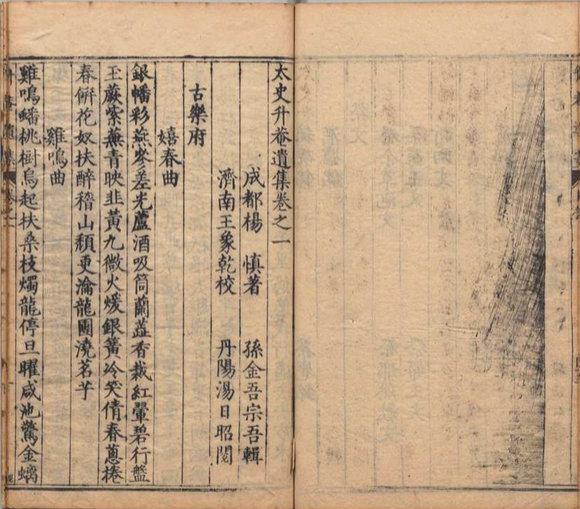 太史升菴遺集卷之一
成都楊　慎著　　孫金吾宗吾輯
濟南王象乾校　　丹陽湯日昭閱
古樂府
嬉春曲
銀幡彩燕參差光蘆酒吸筒蘭藎香裁紅暈碧行盤
玉蕨紫蕪青映韭黃九微火煖銀簧冷笑倩春蔥捲
春餅花奴扶醉稽山頹更瀹龍團澆茗芋
雞鳴曲
雞鳴蟠桃樹烏起扶桑枝燭龍停旦曜咸池驚金螭